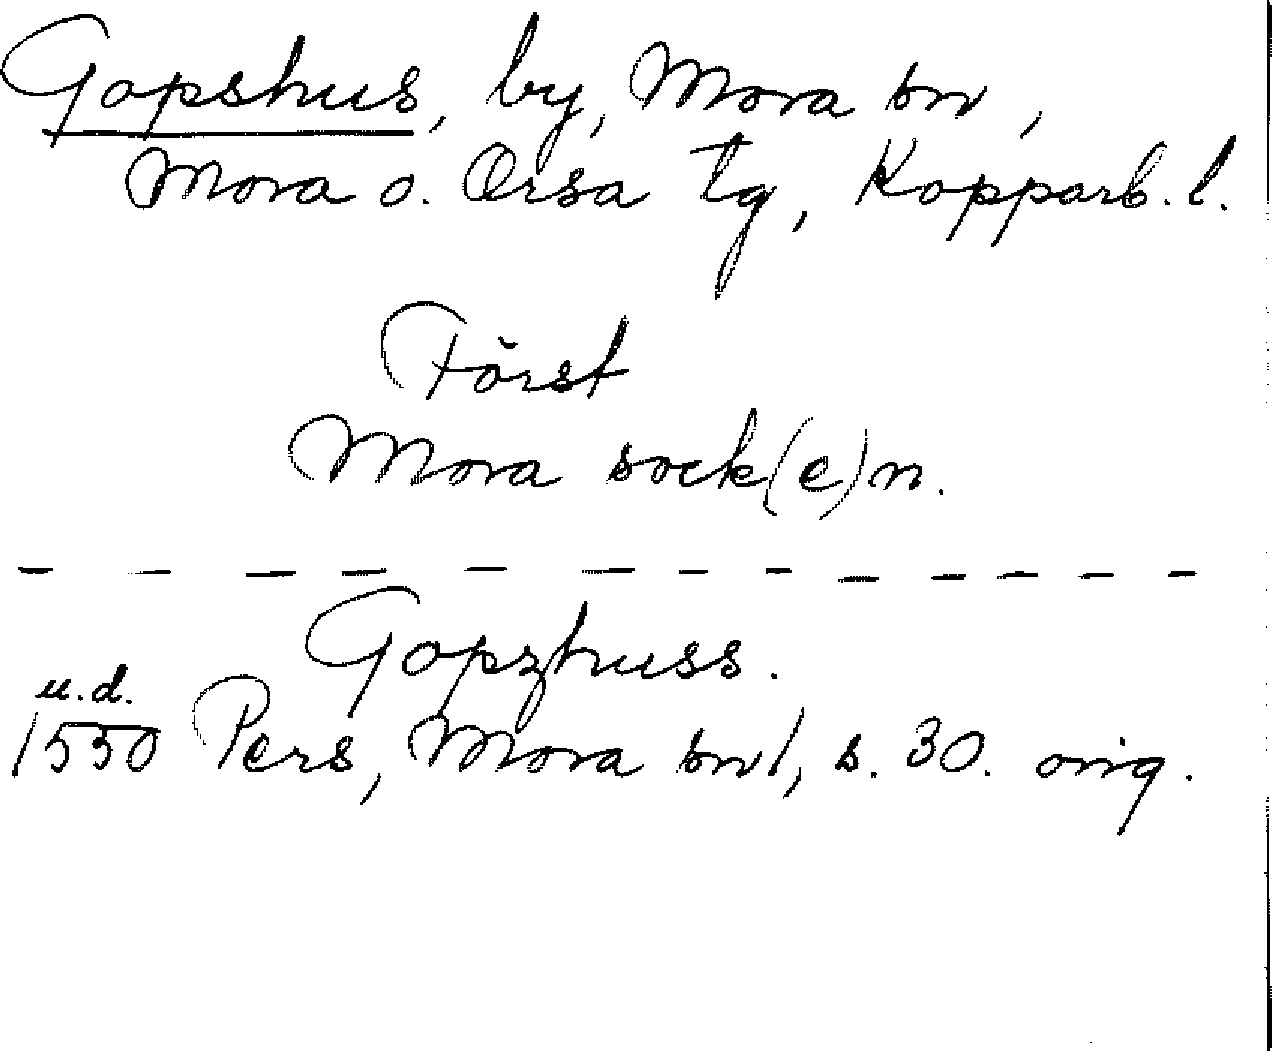 Gopshus, by, Mora sn,
Mora o. Orsa tg, Kopparb. l.
Först
Mora sock(e)n.
— — — — — — — — — — — — —
Gopzhuss.
u.d.
1550 Pers, Mora snl, s. 30. orig.